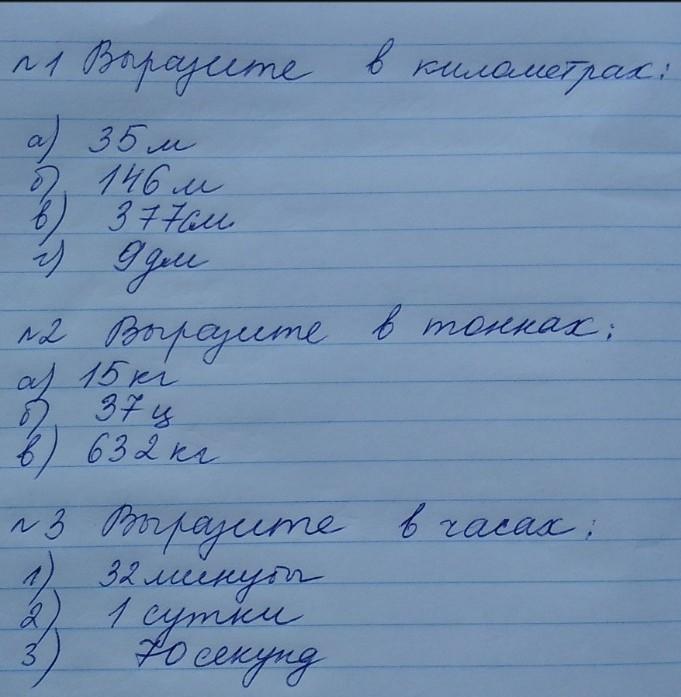 №1 Выразите в километрах:
а) 35 м
б) 146 м
в) 377см
г) 9дм
№2 Выразите в тоннах:
а) 15 кг
б) 37 ц
в) 632 кг
№3 Выразите в часах:
1) 32 минуты
2) 1 сутки
3) 70 секунд